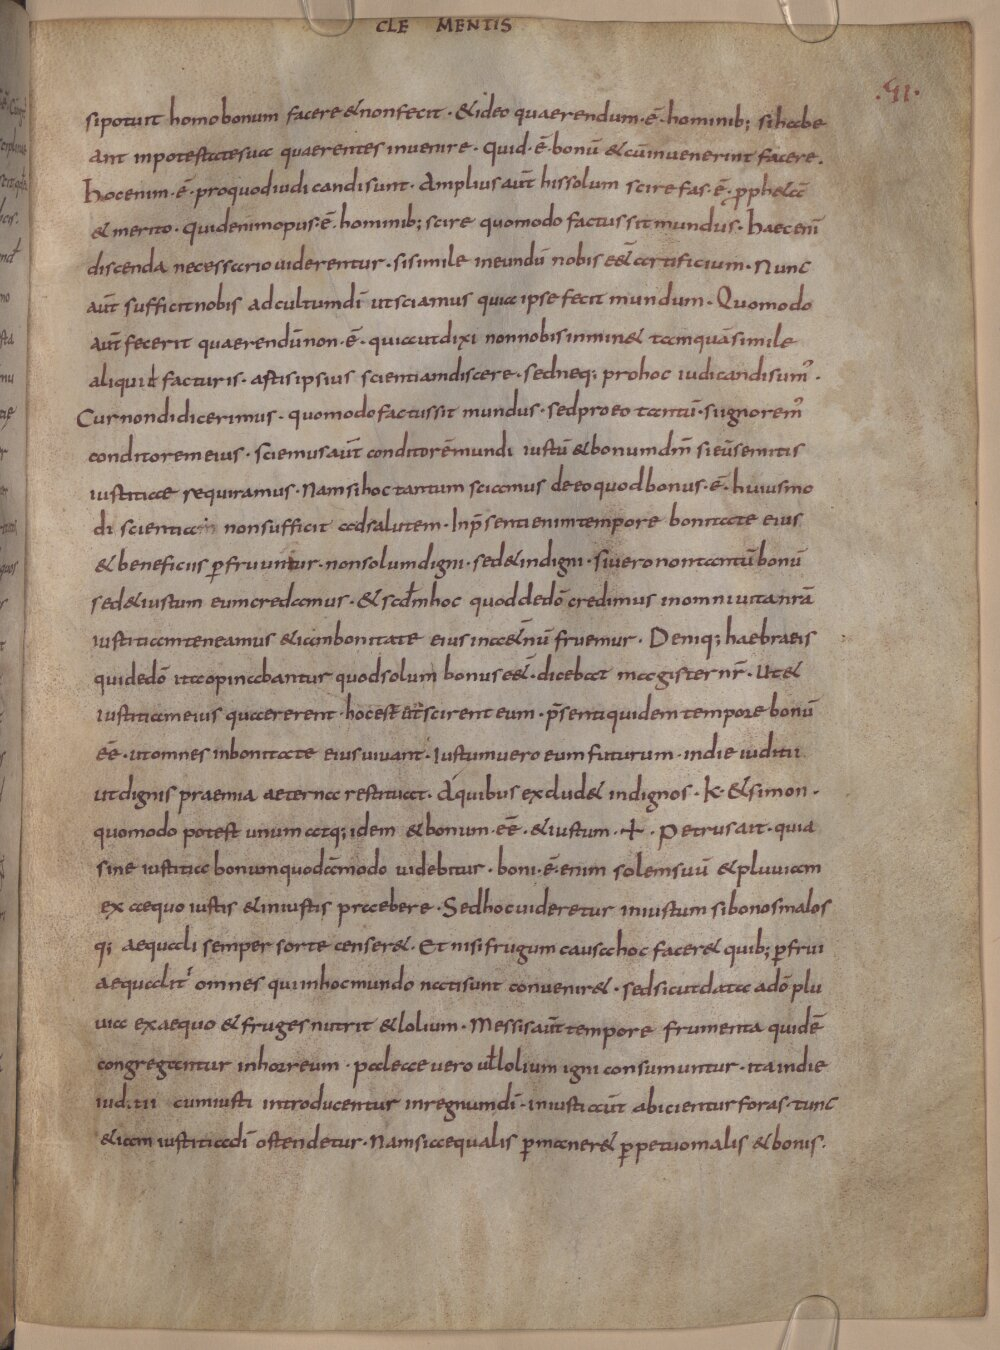 CLE MENTIS
.VI.
si potuit homo bonum facere & non fecit · & ideo quaerendum · ē · hominib; si habe
ant in potestate sua quaerentes invenire · Quid · ē · bonū & cū invenerint facere ·
Hoc enim · ē · pro quo diudicandi sunt · Amplius aūt his solum scire fas · ē · pphetae
& merito · Quid enim opus · ē · hominib; scire quomodo factus sit mundus · haec enī
discenda necessario uiderentur · si simile ineundū nobis eēt artificium · Nunc
aūt sufficit nobis ad cultum dī ut sciamus quia ipse fecit mundum · Quomodo
aūt fecerit quaerendū non · ē · quia ut dixi non nobis inmin& tamquā simile
aliquid facturis · astis ipsius scientiam discere · sed neq; pro hoc iudicandi sum᾽ ·
Cur non didicerimus · quomodo factus sit mundus · sed pro eo tantū · si ignorem᾽
conditorem eius · sciemus aūt conditorē mundi iustū & bonum dm̄ si eū semitis
iustitiae requiramus · Nam si hoc tantum sciamus de eo quod bonus · ē · huiusmo
di scientia non sufficit ad salutem · In p̄senti enim tempore bonitate eius
& beneficiis pfruuntur · non solum digni · sed & indigni · si uero non tantū bonū
sed & iustum eum credamus · & scdm hoc quod de dō credimus in omni uita nrā
iustitiam teneamus & iam bonitate eius in aet̄nū fruemur · Deniq; haebraeis
qui de dō ita opinabantur quod solum bonus eēt · dicebat magister nr̄ · Ut &
iustitiam eius quaererent · hoc est ut scirent eum · p̄senti quidem tempore bonū
eē · ut omnes in bonitate eius uiuant · Iustum uero eum futurum · in die iuditii
ut dignis praemia aeterna restituat · A quibus exclud& indignos · K · & simon ·
quomodo potest unum atq; idem & bonum · eē · & iustum · + · Petrus ait · quia
sine iustitia bonum quodāmodo uidebitur · boni · ē · enim solem suū & pluuiam
ex aequo iustis & iniustis praebere · Sed hoc uideretur iniustum si bonos malos
q; aequali semper sorte censer& · Et nisi frugum causa hoc facer& quib; pfrui
aequalit᾽ omnes qui in hoc mundo nati sunt conuenir& · sed sicut data a dō plu
uia ex aequo & fruges nutrit & lolium · Messis aūt tempore frumenta quidē
congregantur in horreum · paleae uero ut lolium igni consumuntur · ita in die
iuditii cum iusti introducentur in regnum dī · iniusti aūt abicientur foras · tunc
& iam iustitia dī ostendetur · Nam si aequalis pmaner& ppetuo malis & bonis ·